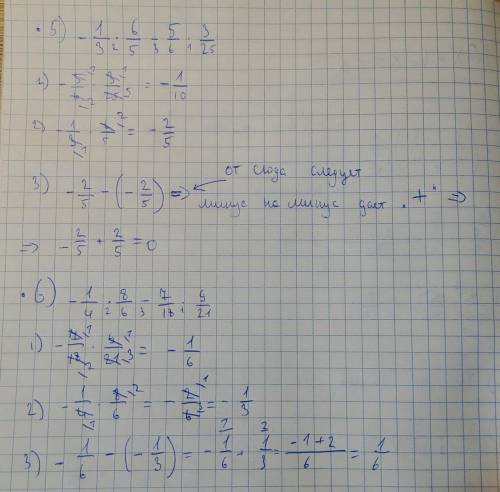 5) -1/3 · 6/5 - 5/6 · 3/25
1) -5/6 · 3/25 = -1/10
2) -1/3 · 6/5 = -2/5
3) -2/5 - (-2/5) => от сюда следует
минус на минус дает "+" =>
=> -2/5 + 2/5 = 0
6) -1/4 · 8/6 - 7/18 · 9/21
1) -7/18 · 9/21 = -1/6
2) -1/4 · 8/6 = -2/6 = -1/3
3) -1/6 - (-1/3) = -1/6 + 1/3 = -1+2/6 = 1/6